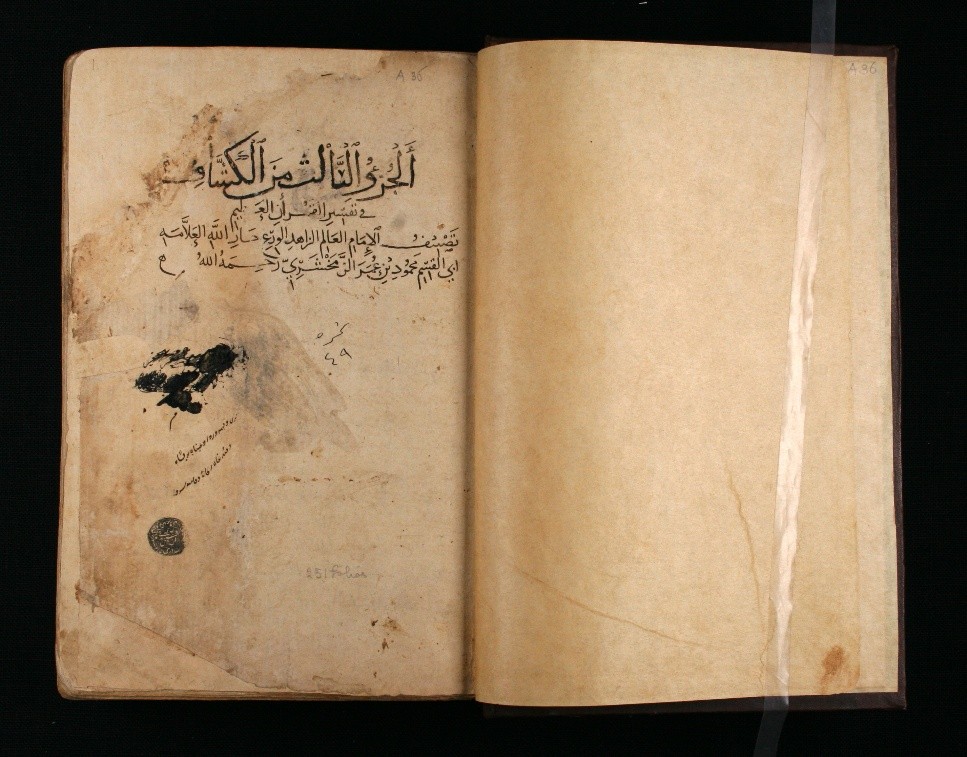 A 36
A.36
1
ألجزؤ الثالث من الكشاف
في تفسير القرأن العظيم
تصنيف الإمام العالم الزاهد الورع جار الله العلامه
ابي القسم محمود بن عمر الزمخشري رحمه الله
نمره
٤٩
251 folios